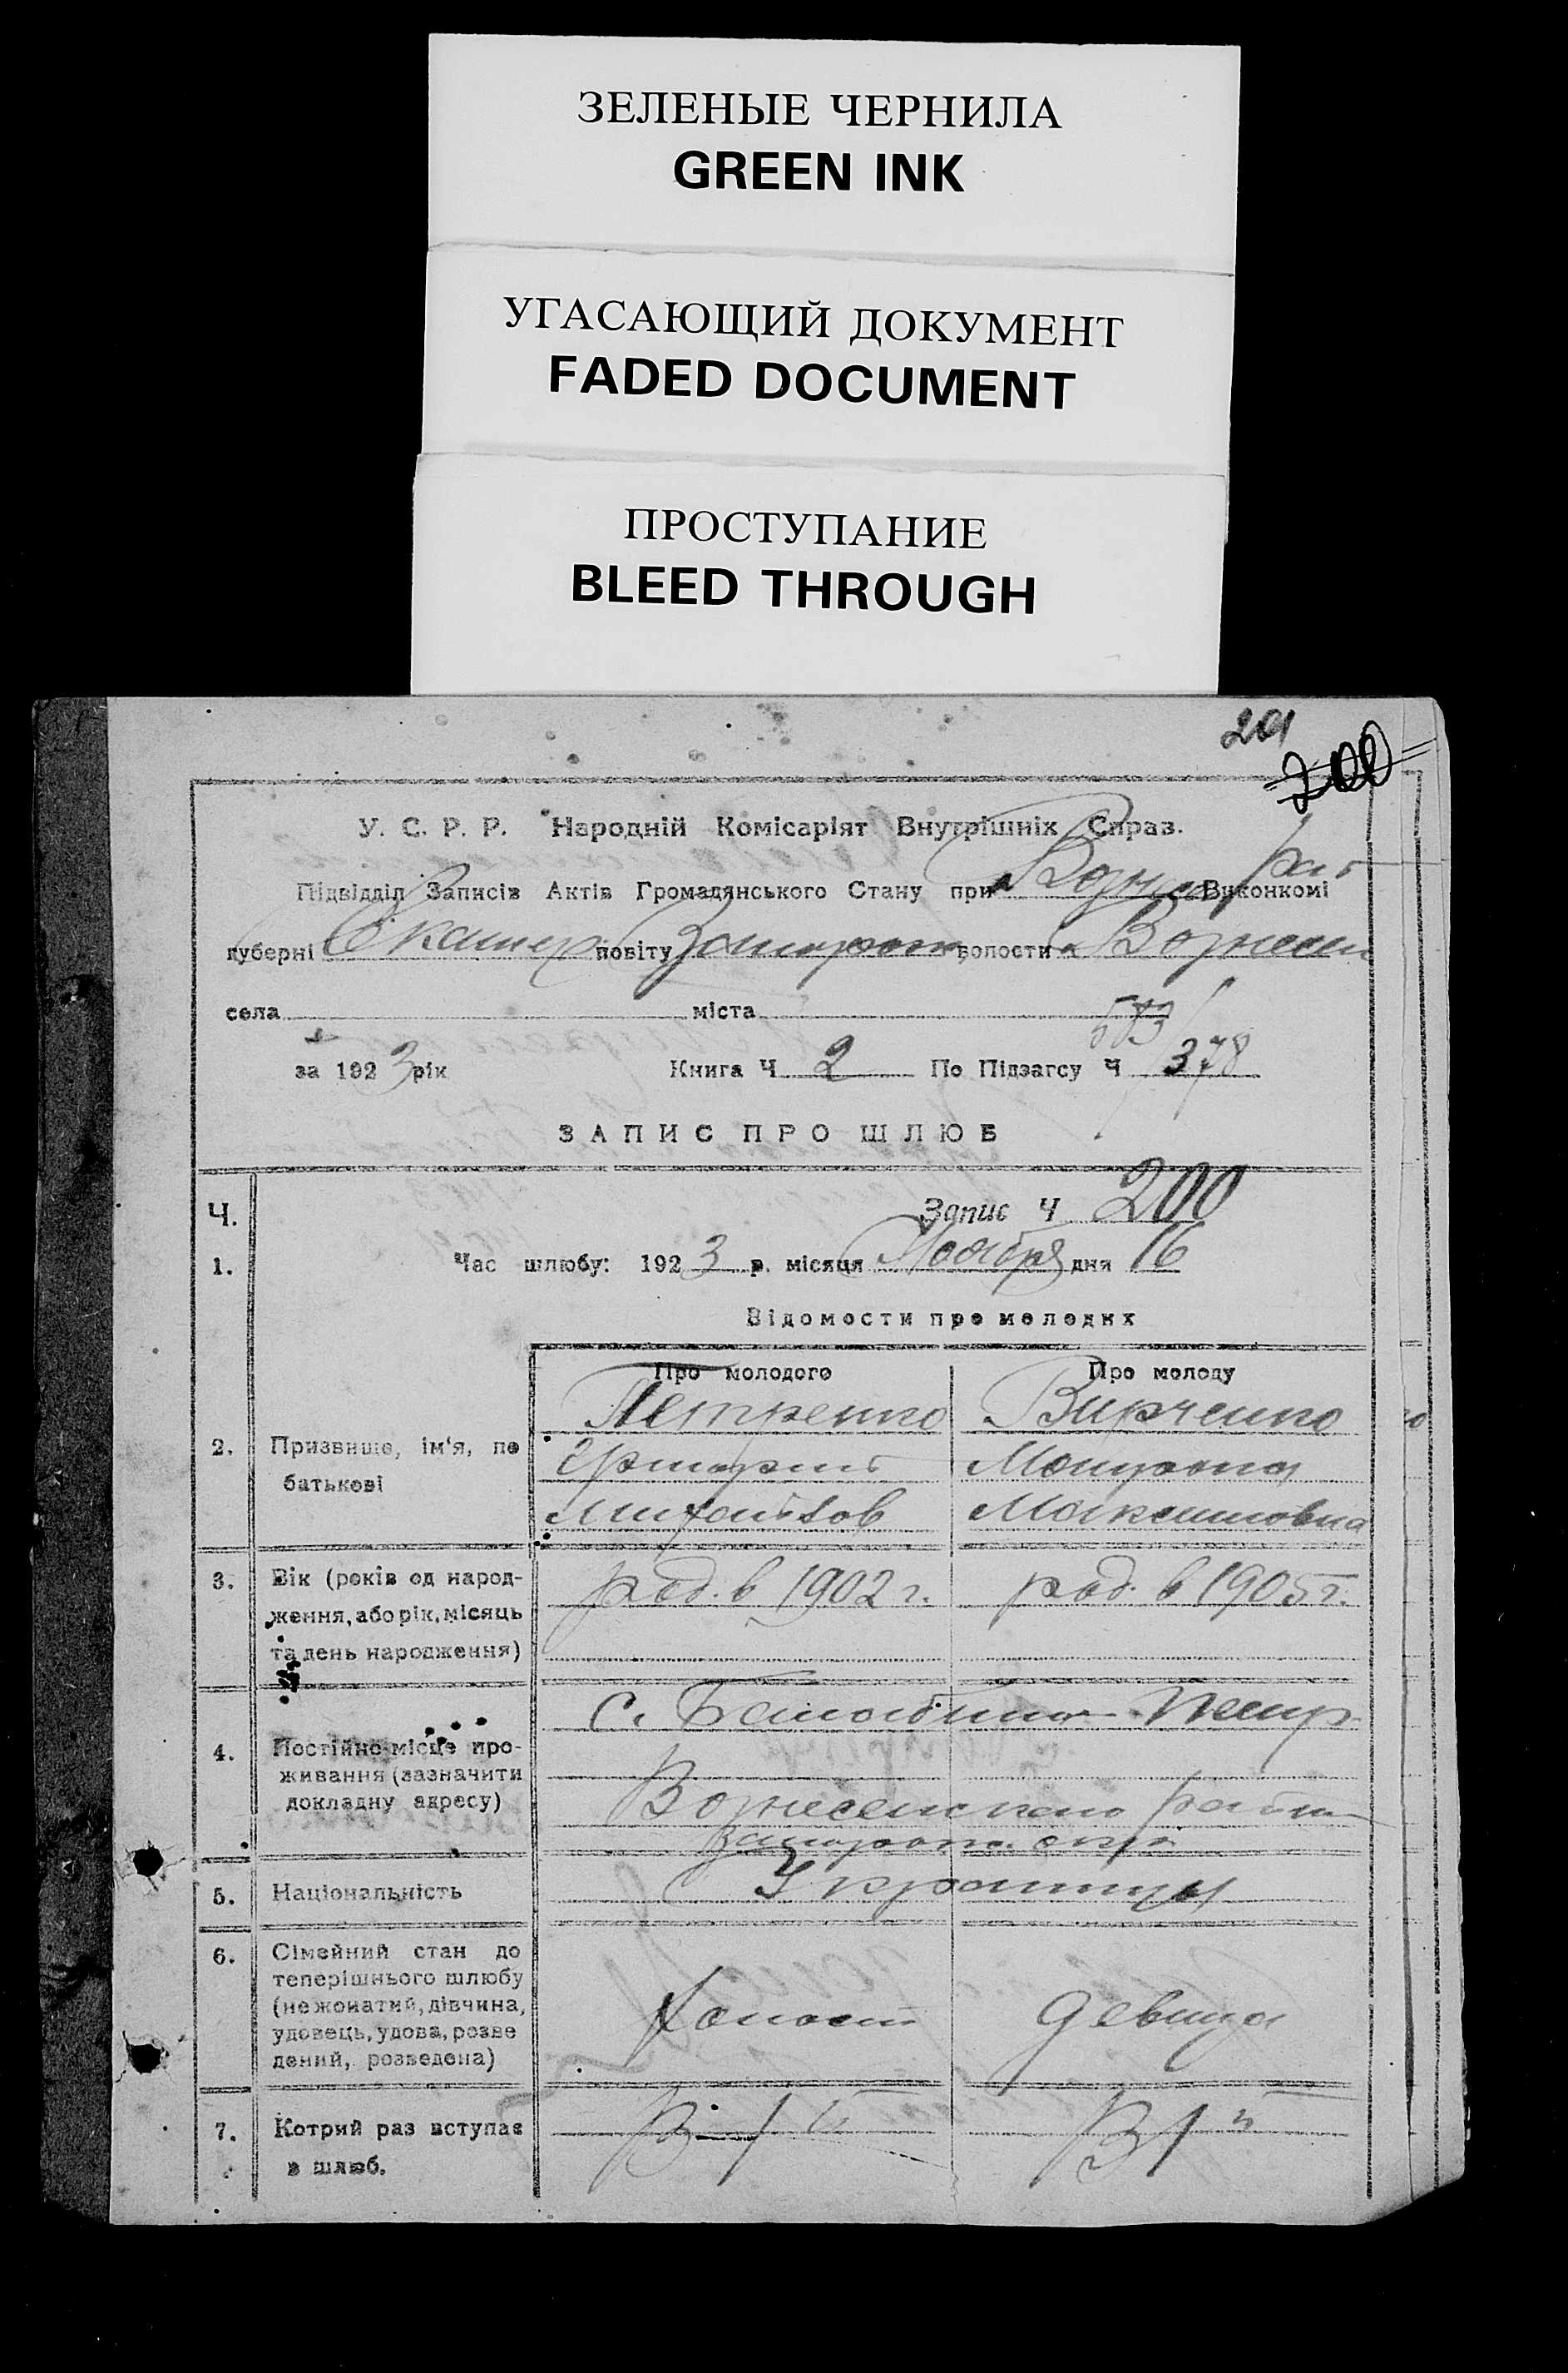 ЗЕЛЕНЫЕ ЧЕРНИЛА
GREEN INK
УГАСАЮЩИЙ ДОКУМЕНТ
FADED DOCUMENT
ПРОСТУПАНИЕ
BLEED THROUGH
201
200
У. С. Р. Р. Народній Комісаріят Внутрішніх Справ.
Підвідділ Записів Актів Громадянського Стану при Виконкомі
губерні Екатер повіту волости
села міста
573
за 1923 рік Книга Ч 2 По Підзагсу Ч 378
ЗАПИС ПРО ШЛЮБ
Ч. Запис Ч 200
1. Час шлюбу: 1923 р. місяця Ноября дня 16
Відомости про молодих
Про молодого Про молоду
Петренко Вирченко
2. Призвище, ім'я, по
батькові
Максимовна
3. Вік (років од народ-
ження, або рік, місяць
та день народження)
род. в 1902 г. род. в 1905 г.
4. Постійне місце про-
живання (зазначити
докладну адресу)
с.
Вознесенского района
5. Національність Украинцы
6. Сімейний стан до
теперішнього шлюбу
(не жонатий, дівчина,
удовець, удова, розве
дений, розведена)
Холост девица
7. Котрий раз вступає
в шлюб.
В 1й В 1й